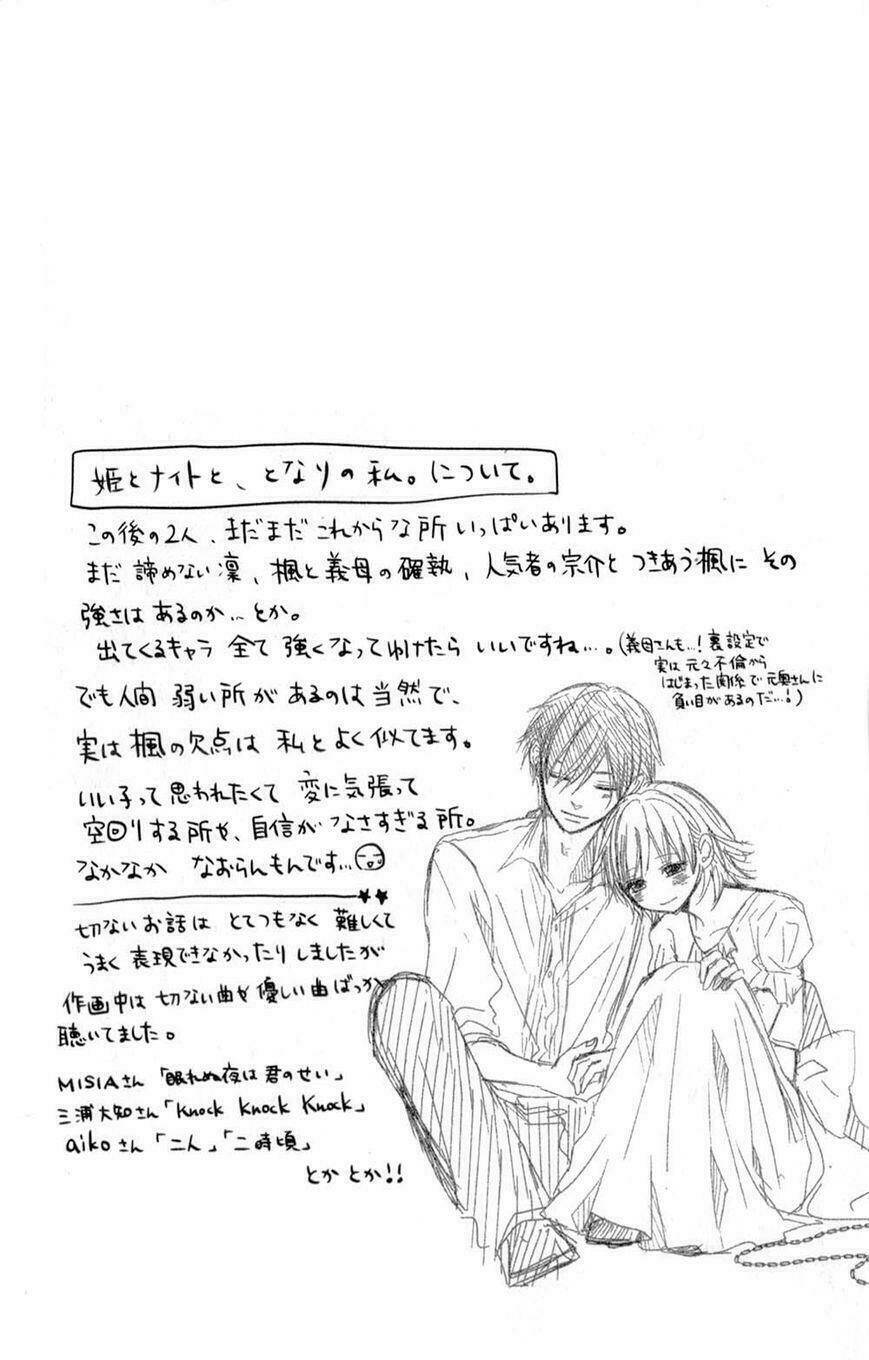 姫とナイトと、となりの私。について。
この後の2人、まだまだこれからな所いっぱいあります。
まだ諦めない凛、楓と義母の確執、人気者の宗介とつきあう楓にその
強さはあるのか…とか。
出てくるキャラ全て強くなってゆけたらいいですね…。
(義母さんも…!裏設定で
実は元々不倫から
はじまった関係で元奥さんに
負い目があるのだ…!)
でも人間弱い所があるのは当然で、
実は楓の欠点は私とよく似てます。
いい子って思われたくて変に気張って
空回りする所や、自信がなさすぎる所。
なかなかなおらんもんです…
切ないお話はとてつもなく難しくて
うまく表現できなかったりしましたが
作画中は切ない曲や優しい曲ばっか
聴いてました。
MISIAさん「眠れぬ夜は君のせい」
三浦大知さん「Knock Knock Knock」
aikoさん「二人」「二時頃」
とかとか!!